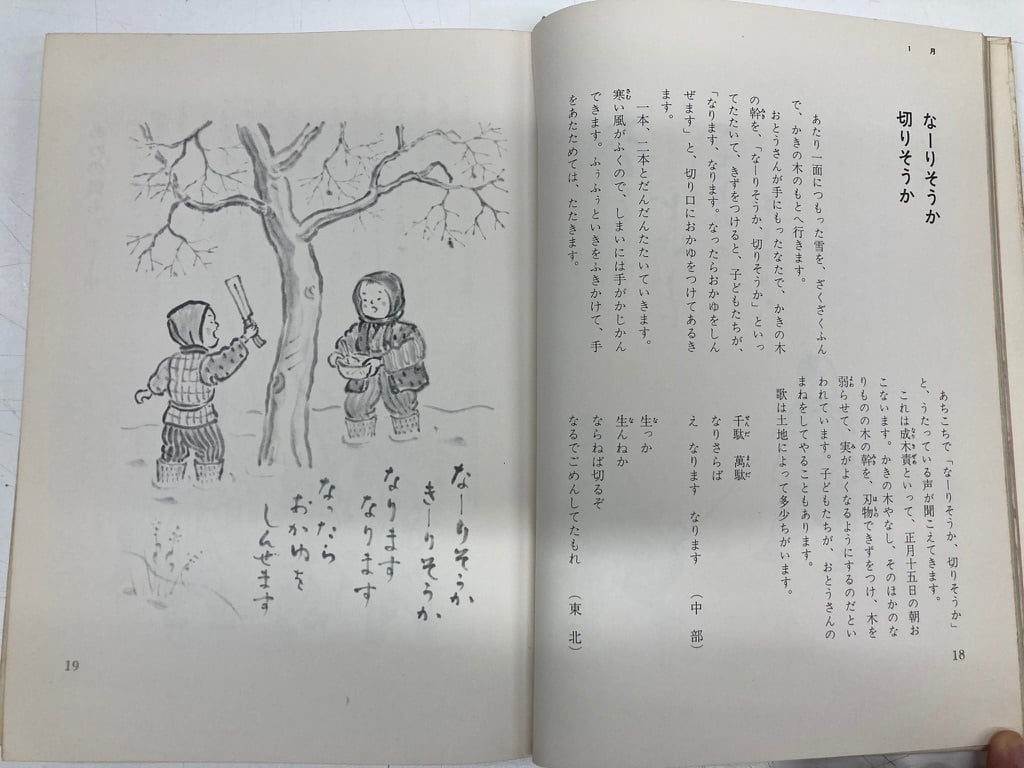 1月
なーりそうか
切りそうか
あたり一面につもった雪を、ざくざくふん
で、かきの木のもとへ行きます。
おとうさんが手にもったなたで、かきの木
の幹を、「なーりそうか、切りそうか」といっ
てたたいて、きずをつけると、子どもたちが、
「なります、なります。なったらおかゆをしん
ぜます」と、切り口におかゆをつけてあるき
ます。
一本、二本とだんだんたたいていきます。
寒い風がふくので、しまいには手がかじかん
できます。ふぅふぅといきをふきかけて、手
をあたためては、たたきます。
あちこちで「なーりそうか、切りそうか」
と、うたっている声が聞こえてきます。
これは成木責といって、正月十五日の朝お
こないます。かきの木やなし、そのほかのな
りものの木の幹を、刃物できずをつけ、木を
弱らせて、実がよくなるようにするのだとい
われています。子どもたちが、おとうさんの
まねをしてやることもあります。
歌は土地によって多少ちがいます。
千駄 萬駄
なりさらば
え なります なります (中部)
生っか
生んねか
ならねば切るぞ
なるでごめんしてたもれ (東北)
18
なーりそうか
きーりそうか
なります
なります
なったら
おかゆを
しんぜます
19